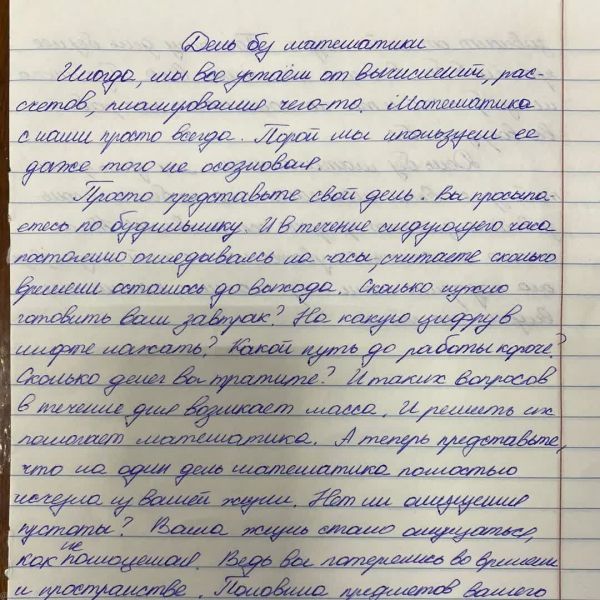 День без математики
Иногда, мы все устаём от вычислений, рас-
счетов, планирования чего-то. Математика
с нами просто всегда. Порой мы используем ее
даже того не осозновая.
Просто представьте свой день. Вы просыпа-
етесь по будильнику. И в течение следующего часа
постоянно оглядываясь на часы, считаете сколько
времени осталось до выхода. Сколько нужно
готовить ваш завтрак? На какую цифру в
лифте нажать? Какой путь до работы короче?
Сколько денег вы тратите? И таких вопросов
в течение дня возникает масса. И решать их
помогает математика. А теперь представьте,
что на один день математика полностью
исчезла из вашей жизни. Нет ли ощущения
пустоты? Ваша жизнь стало ощущаться,
как не полноценая. Ведь вы потерялись во времени
и пространстве. Половина предметов вашего